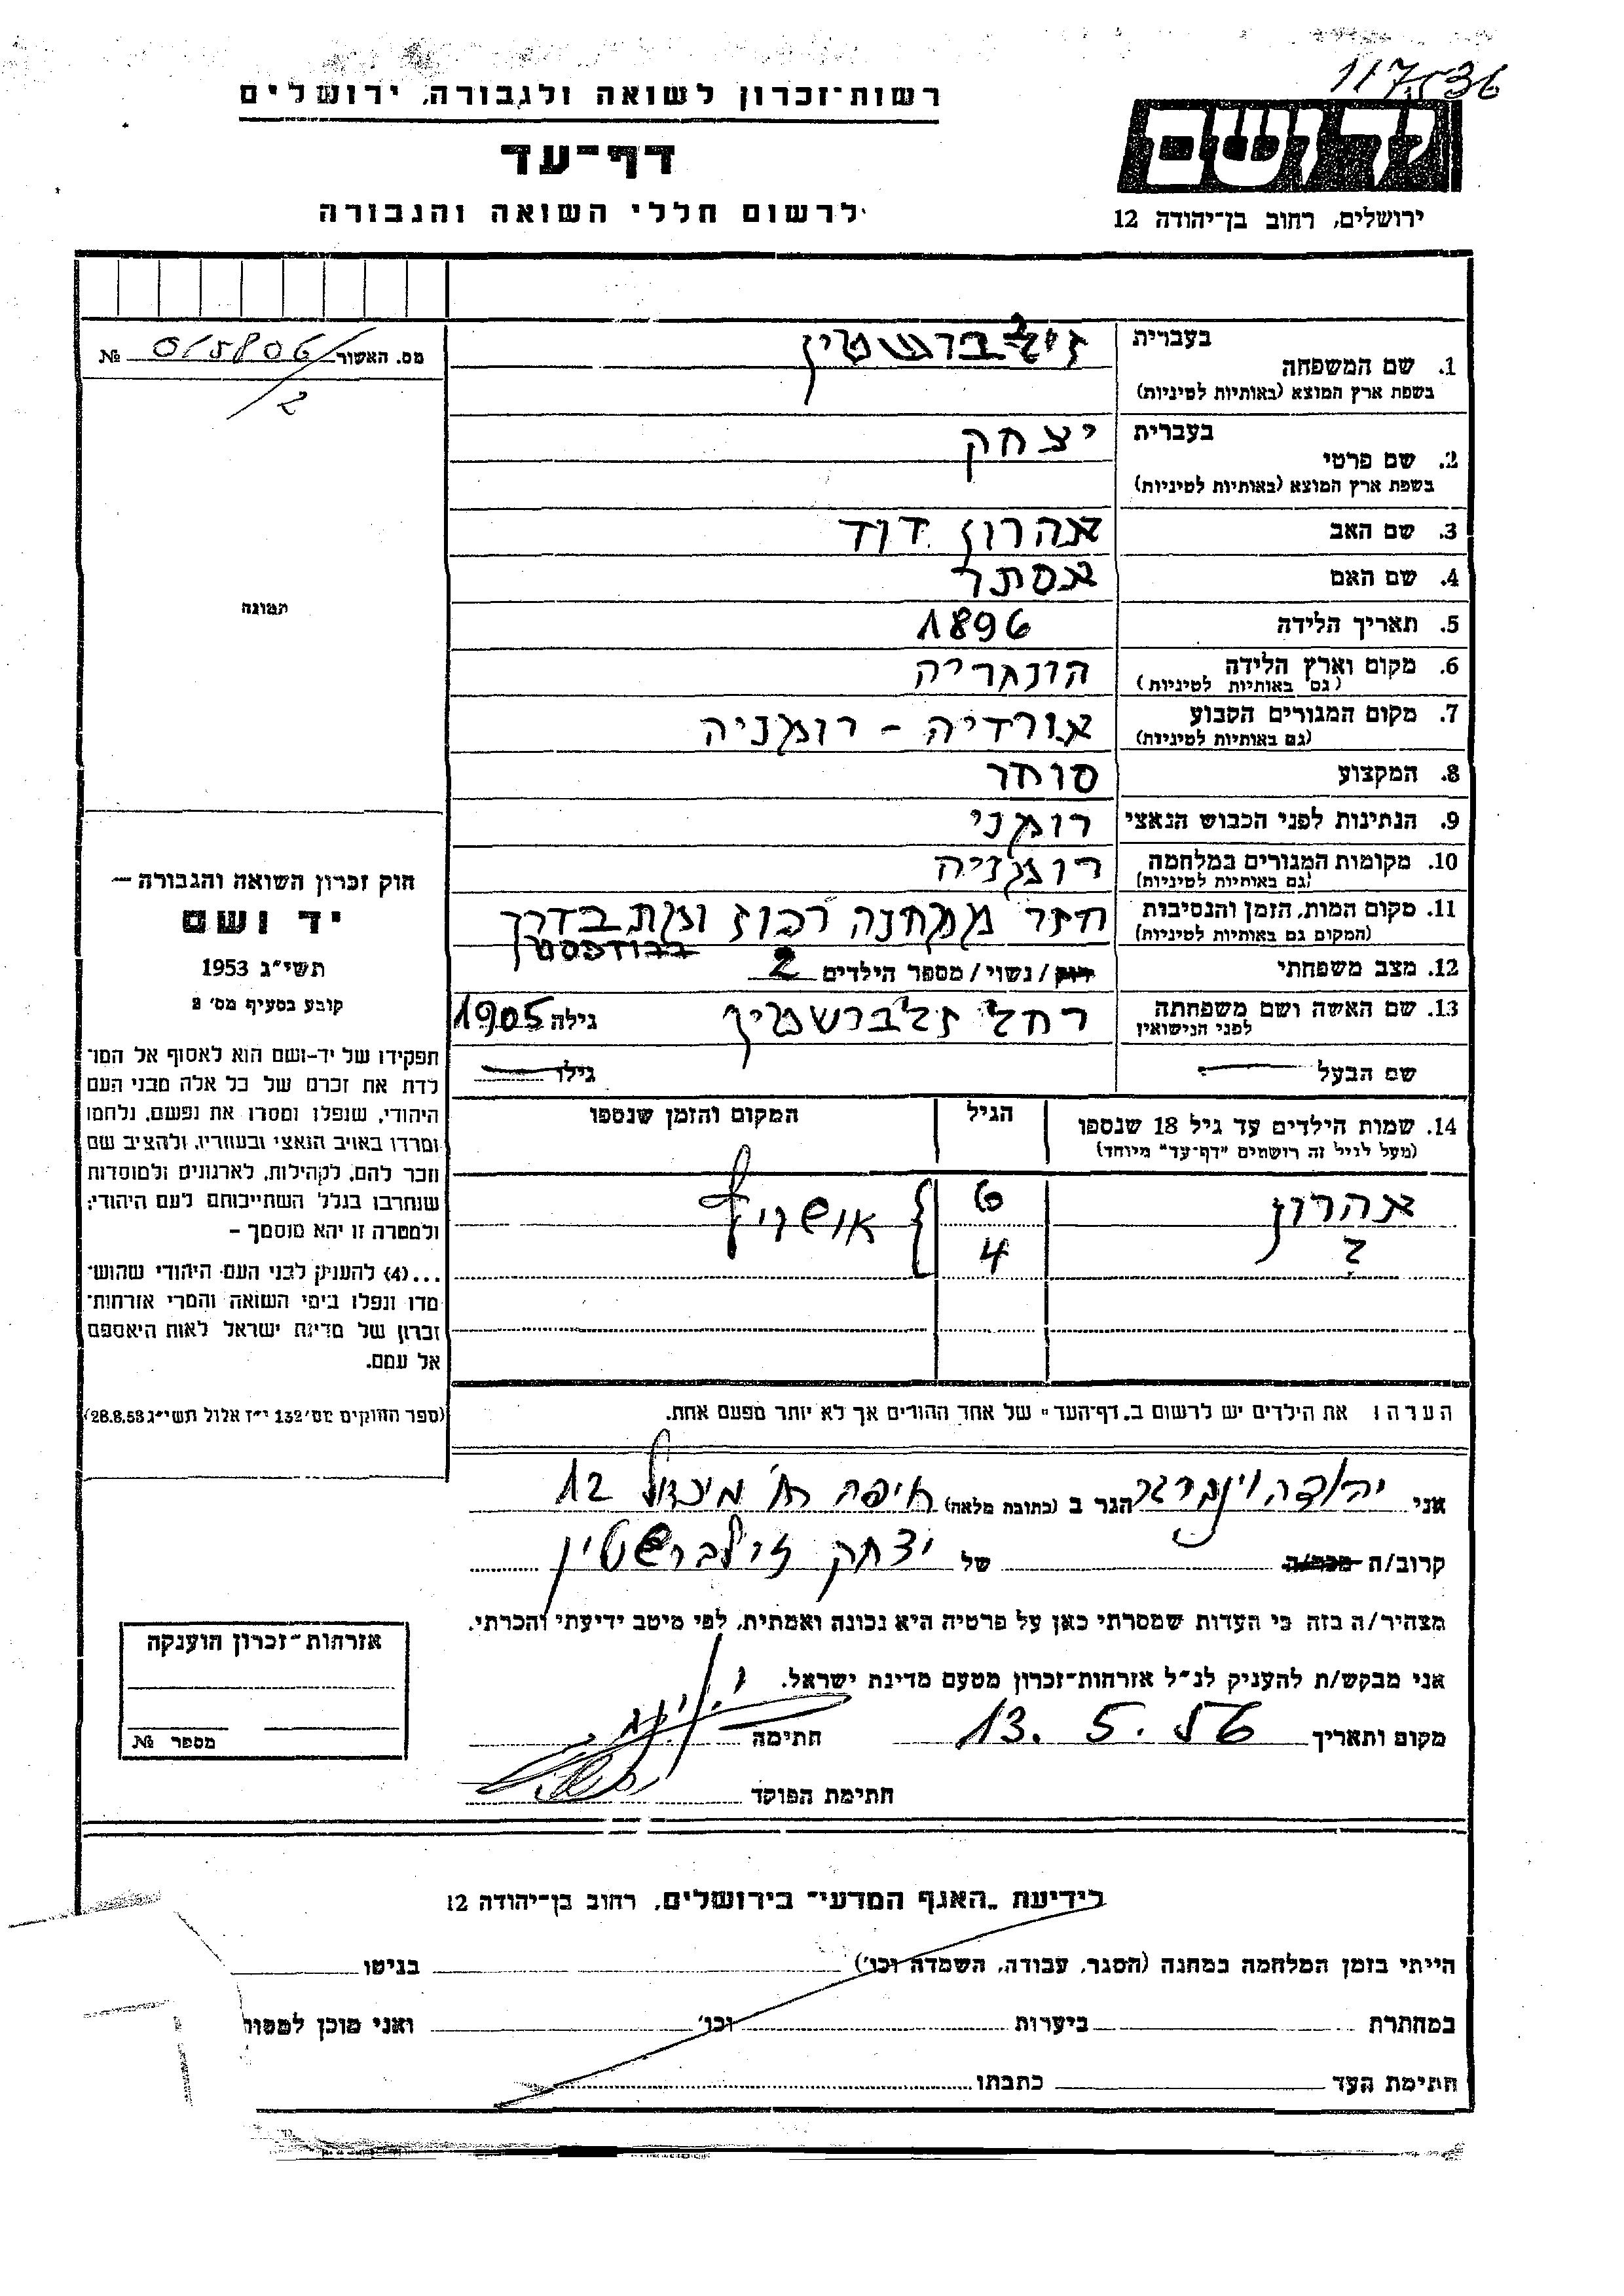 117536
רשות־זכרון לשואה ולגבורה, ירושלים
יד ושם
דף־עד
ירושלים, רחוב בן־יהודה 12
לרשום חללי השואה והגבורה
מס. האשור 015806/2 №
1. שם המשפחה בעברית זילברשטין
בשפת ארץ המוצא (באותיות לטיניות)
2. שם פרטי בעברית יצחק
בשפת ארץ המוצא (באותיות לטיניות)
3. שם האב אהרון דוד
4. שם האם אסתר
5. תאריך הלידה 1896
6. מקום וארץ הלידה הונגריה
(גם באותיות לטיניות)
7. מקום המגורים הקבוע אורדיה - רומניה
(גם באותיות לטיניות)
8. המקצוע סוחר
9. הנתינות לפני הכבוש הנאצי רומני
10. מקומות המגורים במלחמה רומניה
(גם באותיות לטיניות)
11. מקום המות, הזמן והנסיבות חזר ממחנה רכוז ומת בדרך
(המקום גם באותיות לטיניות) בבודפסט
12. מצב משפחתי רווק / נשוי / מספר הילדים 2
13. שם האשה ושם משפחתה רחל זלברשטין גילה 1905
לפני הנישואין
שם הבעל גילו
14. שמות הילדים עד גיל 18 שנספו הגיל המקום והזמן שנספו
(מעל לגיל זה רושמים "דף־עד" מיוחד)
אהרון 6 אושויץ
? 4
תמונה
חוק זכרון השואה והגבורה —
יד ושם
תשי"ג 1953
קובע בסעיף מס' 2
תפקידו של יד-ושם הוא לאסוף אל המו־
לדת את זכרם של כל אלה מבני העם
היהודי, שנפלו ומסרו את נפשם, נלחמו
ומרדו באויב הנאצי ובעוזריו, ולהציב שם
וזכר להם, לקהילות, לארגונים ולמוסדות
שנחרבו בגלל השתייכותם לעם היהודי;
ולמטרה זו יהא מוסמך –
...(4) להעניק לבני העם היהודי שהוש־
מדו ונפלו בימי השואה והמרי אזרחות־
זכרון של מדינת ישראל לאות היאספם
אל עמם.
(ספר החוקים מס' 132 י"ז אלול תשי"ג 28.8.53)
הערה: את הילדים יש לרשום ב„דף־העד" של אחד ההורים אך לא יותר מפעם אחת.
אני יהודה וינברגר הגר ב (כתובת מלאה) חיפה רח' 12
קרוב/ה מכר/ה של יצחק זילברשטין
מצהיר/ה בזה כי העדות שמסרתי כאן על פרטיה היא נכונה ואמתית, לפי מיטב ידיעתי והכרתי.
אני מבקש/ת להעניק לנ"ל אזרחות־זכרון מטעם מדינת ישראל.
מקום ותאריך 13. 5. 56 חתימה
חתימת הפוקד
אזרחות־זכרון הוענקה
מספר №
בידיעת „האגף המדעי" בירושלים, רחוב בן־יהודה 12
הייתי בזמן המלחמה במחנה (הסגר, עבודה, השמדה וכו') בגיטו
במחתרת ביערות וכו' ואני מוכן למסור
חתימת העד כתבתו